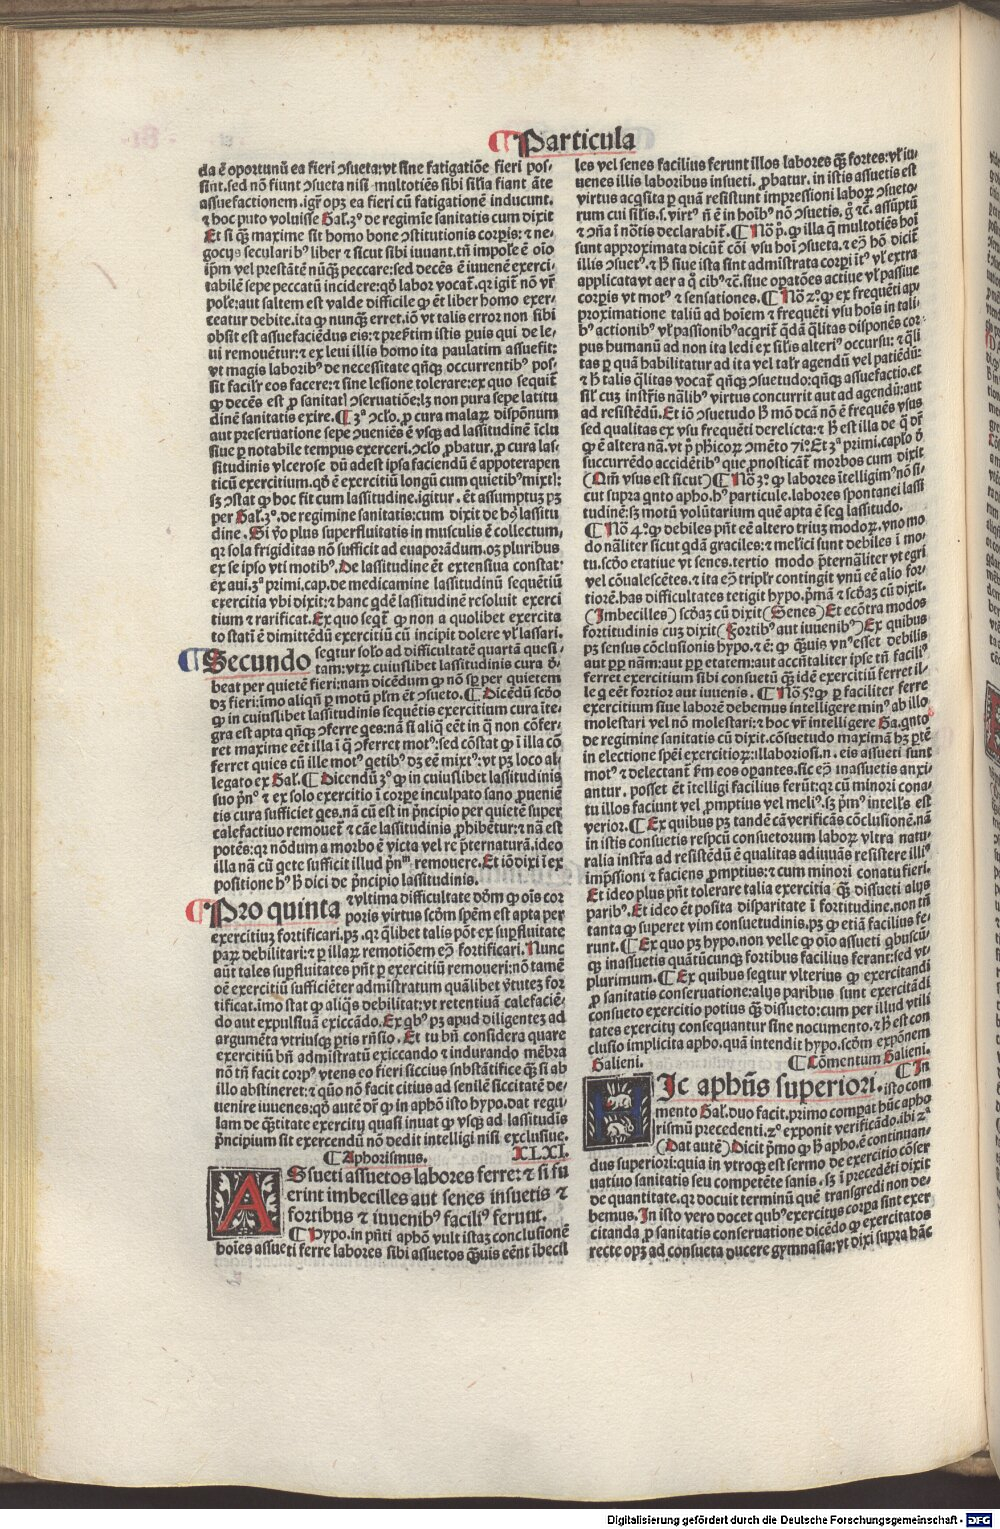 ¶Particula
da ē oportunū ea fieri ꝯsueta: vt sine fatigatiōe fieri pos-
sint. sed nō fiunt ꝯsueta nisi multotiēs sibi sil̄ia fiant āte
assuefactionem. igr̄ opꝫ ea fieri cū fatigationē inducunt.
⁊ hoc puto voluisse Gal. 3º de regimīe sanitatis cum dixit
Et si qͣ maxime sit homo bone ꝯstitutionis corpis: ⁊ ne-
gocijs secularibꝰ liber ⁊ sicut sibi iuuant. tn̄ impole ē oīo
ip̄m vel prestātē nūqͣ peccare: sed decēs ē iuuenē exerci-
tabilē sepe peccatū incidere: qd̄ labor vocat̄. qr igit̄ nō vr̄
pole: aut saltem est valde difficile ꝙ ēt liber homo exer-
ceatur debite. ita ꝙ nunqͣ erret. iō vt talis error non sibi
obsit est assuefaciēdus eis: ⁊ presertim istis puis qui de le-
ui remouētur: ⁊ ex leui illis homo ita paulatim assuefit:
vt magis laboribꝰ de necessitate qn̄qꝫ occurrentibꝰ pos-
sit facilr̄ eos facere: ⁊ sine lesione tolerare: ex quo sequit̄
ꝙ decēs est ꝓ sanitat̄ ꝯseruatiōe: lꝫ non pura sepe latitu
dinē sanitatis exire. ¶ 3ª ꝯclo. ꝓ cura malaꝝ dispōnum
aut preseruatione sepe ꝯueniēs ē vsqꝫ ad lassitudinē īclu
siue ꝑ notabile tempus exerceri. ꝯclo ꝓbatur. ꝓ cura las-
situdinis vlcerose dū adest ipsa faciendū ē appoterapen
ticū exercitium. qd̄ ē exercitiū longū cum quietibꝰ mixt̄:
sꝫ ꝯstat ꝙ hoc fit cum lassitudine. igitur. ēt assumptuꝫ pꝫ
per Gal. 3º. de regimine sanitatis: cum dixit de hꝰ lassitu
dine. Si v̄o plus superfluitatis in musculis ē collectum,
qr sola frigiditas nō sufficit ad euaporādum. oꝫ pluribus
ex se ipso vti motibꝰ. De lassitudine ēt extensiua constat
ex aui. 3ª primi. cap. de medicamine lassitudinū sequētiū
exercitia vbi dixit: ⁊ hanc qͥdē lassitudinē resoluit exerci
tium ⁊ rarificat. Ex quo seqt̄ ꝙ non a quolibet exercita
to statī ē dimittēdū exercitiū cū incipit dolere vl̄ lassari.
¶Secundo seqtur solo ad difficultatē quartā quesi-
tam: vtꝝ cuiuslibet lassitudinis cura d̄-
beat per quietē fieri: nam dicēdum ꝙ nō sp̄ per quietem
dꝫ fieri: īmo aliqn̄ ꝑ motū pl̄m ēt ꝯsueto. ¶ Dicēdū scd̄o
ꝙ in cuiuslibet lassitudinis sequētis exercitium cura īte-
gra est apta qn̄qꝫ ꝯferre qes: nā si aliq̄ eēt in q̄ non cōfer-
ret maxime eēt illa ī q̄ ꝯferret motꝰ: sed cōstat ꝙ ī illa cō
ferret quies cū ille motꝰ qetibꝰ dꝫ eē mixtꝰ: vt pꝫ loco al-
legato ex Gal. ¶ Dicendū 3º ꝙ in cuiuslibet lassitudinis
suo pn̄º ⁊ ex solo exercitio ī corpe inculpato sano ꝓueniē
tis cura sufficiet qes. nā cū est in pn̄cipio per quietē super
calefactiuo remouet̄ ⁊ cāe lassitudinis ꝓhibētur: ⁊ nā est
potēs: qr nōdum a morbo ē victa vel re pternaturā. ideo
illa nā cū qete sufficit illud pn̄ᵐ remouere. Et iō dixi ī ex
positione hꝰ ꝧ dici de pn̄cipio lassitudinis.
¶Pro quinta ⁊ vltima difficultate dōm ꝙ oīs cor
poris virtus scd̄m spēm est apta per
exercitiuꝫ fortificari. pꝫ. qr qͣlibet talis pōt ex supfluitate
paꝝ debilitari: ⁊ ꝑ illaꝝ remotiōem eꝫ fortificari. Nunc
aūt tales supfluitates pn̄t ꝑ exercitiū remoueri: nō tamē
oē exercitiū sufficiēter admīstratum quālibet v̄tuteꝫ for
tificat. imo stat ꝙ aliqͣs debilitat: vt retentiuā calefaciē-
do aut expulsiuā exiccādo. Ex qbꝰ pꝫ apud diligenteꝫ ad
argumēta vtriusqꝫ ptis rn̄sio. Et tu bn̄ considera quare
exercitiū bn̄ admīstratū exiccando ⁊ indurando mēbra
nō tn̄ facit corpꝰ vtens eo fieri siccius substātifice qꝫ si ab
illo abstineret: ⁊ quō nō facit citius ad senilē siccitatē de-
uenire iuuenes: qd̄ autē dr̄ ꝙ in aphō isto hypo. dat regu
lam de qͣtitate exercitij quasi inuat ꝙ vsqꝫ ad lassitudīs
pn̄cipium sit exercendū nō dedit intelligi nisi exclusiue.
¶ Aphorismus. XLXI.
ASsueti assuetos labores ferre: ⁊ si fu
erint imbecilles aut senes insuetis ⁊
fortibus ⁊ iuuenibꝰ faciliꝰ ferunt.
¶ Hypo. in pn̄ti aphō vult istaꝫ conclusionē
hoīes assueti ferre labores sibi assuetos qͣuis eēnt ībecil
les vel senes facilius ferunt illos labores qꝫ fortes: vl̄ iu-
uenes illis laboribus insueti. ꝓbatur. in istis assuetis est
virtus acqͥsita ꝑ quā resistunt impressioni laboꝝ ꝯsueto-
rum cui sil̄is. s. virtꝰ n̄ ē in hoībꝰ nō ꝯsuetis. g̊ ⁊c̄. assūptū
⁊ ꝯn̄a ī nōtis declarabit̄. ¶ Nō pº. ꝙ illa q̄ multotiēs hoī
sunt approximata dicūt̄ cōi vsu hoī ꝯsueta. ⁊ eꝫ hō dicit̄
illis ꝯsuetꝰ. ⁊ ꝧ siue ista sint admīstrata corpi ītꝰ vl̄ extra
applicata vt aer a q̄ cibꝰ ⁊c̄. siue opatōes actiue vl̄ passiue
corpis vt motꝰ ⁊ sensationes. ¶ Nō 2º. ꝙ ex frequēti ap-
proximatione taliū ad hoīem ⁊ frequēti vsu hoīs in tali-
bꝰ actionibꝰ vl̄ passionibꝰ acgrit̄ qͣdā qͣlitas disponēs cor-
pus humanū ad non ita ledi ex silis alteriꝰ occursu: ⁊ qͣli
tas ꝑ quā habilitatur ad ita vel talr̄ agendū vel patiēdū:
⁊ ꝧ talis qͣlitas vocat̄ qn̄qꝫ ꝯsuetudo: qn̄qꝫ assuefactio. et
sil̄ cuꝫ instr̄is nālibꝰ virtus concurrit aut ad agendū: aut
ad resistēdū. Et iō ꝯsuetudo ꝧ mō dcā nō ē frequēs vsus
sed qualitas ex vsu frequēti derelicta: ⁊ ꝧ est illa de q̄ dr̄
ꝙ ē altera nā. vt pꝫ phīcoꝝ ꝯmēto 71º. Et 3ª primi. caplo d̄
succurrēdo accidētibꝰ que pnosticāt̄ morbos cum dixit
(Qm̄ vsus est sicut) ¶ Nō 3º. ꝙ labores ītelligimꝰ nō si-
cut supra qͥnto apho. hꝰ particule. labores spontanei lassi
tudinē: sꝫ motū volūtarium quē apta ē seq̄ lassitudo.
¶ Nō 4º. ꝙ debiles pn̄t eē altero triuꝫ modoꝝ. vno mo
do nāliter sicut qͥdā graciles: ⁊ mel̄ici sunt debiles ī mo-
tu. scd̄o etatiue vt senes. tertio modo pternāliter vt egri
vel cōualescētes. ⁊ ita eꝫ tripl̄r contingit vnū eē alio for-
tiorē. has difficultates tetigit hypo. pmā ⁊ scd̄aꝫ cū dixit.
(Imbecilles) scd̄aꝫ cū dixit (Senes) Et ecōtra modos
fortitudinis cuꝫ dixit (Fortibꝰ aut iuuenibꝰ) Ex quibus
pꝫ sensus cōclusionis hypo. ⁊ ē: ꝙ qͣuis vnꝰ esset debilis
aut ppꝫ nām: aut ppꝫ etatem: aut accn̄taliter ipse tn̄ faciliꝰ
ferret exercitium sibi consuetū qͣꝫ idē exercitiū ferret il-
le q̄ eēt fortior aut iuuenis. ¶ Nō 5º. ꝙ ꝑ faciliter ferre
exercitium siue laborē debemus intelligere minꝰ ab illo
molestari vel nō molestari: ⁊ hoc vr̄ intelligere Ga. qͥnto
de regimine sanitatis cū dixit. cōsuetudo maximā hꝫ ptē
in electione spēi exercitioꝝ: illaboriosi. n. eis assueti sunt
motꝰ ⁊ delectant̄ fm eos opantes. sic eꝫ inassuetis anxi-
antur. posset ēt ītelligi facilius ferūt: qr cū minori cona-
tu illos faciunt vel ꝓmptius vel meliꝰ. sꝫ pmꝰ intell̄s est
verior. ¶ Ex quibus pꝫ tandē cā verificās cōclusionē. nā
in istis consuetis respcū consuetorum laboꝝ vltra natu-
ralia instr̄a ad resistēdū ē qualitas adiuuās resistere illiꝰ
impssioni ⁊ faciens ꝓmptius: ⁊ cum minori conatu fieri.
Et ideo plus pn̄t tolerare talia exercitia qꝫ dissueti alijs
paribꝰ. Et ideo ēt posita disparitate ī fortitudine. non tn̄
tanta ꝙ superet vim consuetudinis. pꝫ ꝙ etiā facilius fe-
runt. ¶ Ex quo pꝫ hypo. non velle ꝙ oīo assueti qbuscū-
qꝫ inassuetis quātūcunqꝫ fortibus facilius ferant: sed vt-
plurimum. ¶ Ex quibus seqtur vlterius ꝙ exercitandi
ꝓ sanitatis conseruatione: alijs paribus sunt exercitādi
consueto exercitio potius qꝫ dissueto: cum per illud vtili
tates exercitij consequantur sine nocumento. ⁊ ꝧ est con
clusio implicita apho. quā intendit hypo. scd̄m expōnem
Galieni. ¶ Cōmentum Galieni.
HIc aphūs superiori. ¶ In
isto com
mento Gal. duo facit. primo compat hūc apho
rismū precedenti. 2º exponit verificādo. ibi 2ª
(Dat autē) Dicit pmo ꝙ ꝧ apho. ē continuan-
dus superiori: quia in vtroqꝫ est sermo de exercitio cōser
uatiuo sanitatis seu competēte sanis. sꝫ ī precedēti dixit
de quantitate. qr docuit terminū quē transgredi non de-
bemus. In isto vero docet qubꝰ exercitijs corpa sint exer
citanda ꝓ sanitatis conseruatione dicēdo ꝙ exercitatos
recte opꝫ ad consueta ducere gymnasia: vt dixi supra hāc
Digitalisierung gefördert durch die Deutsche Forschungsgemeinschaft - DFG